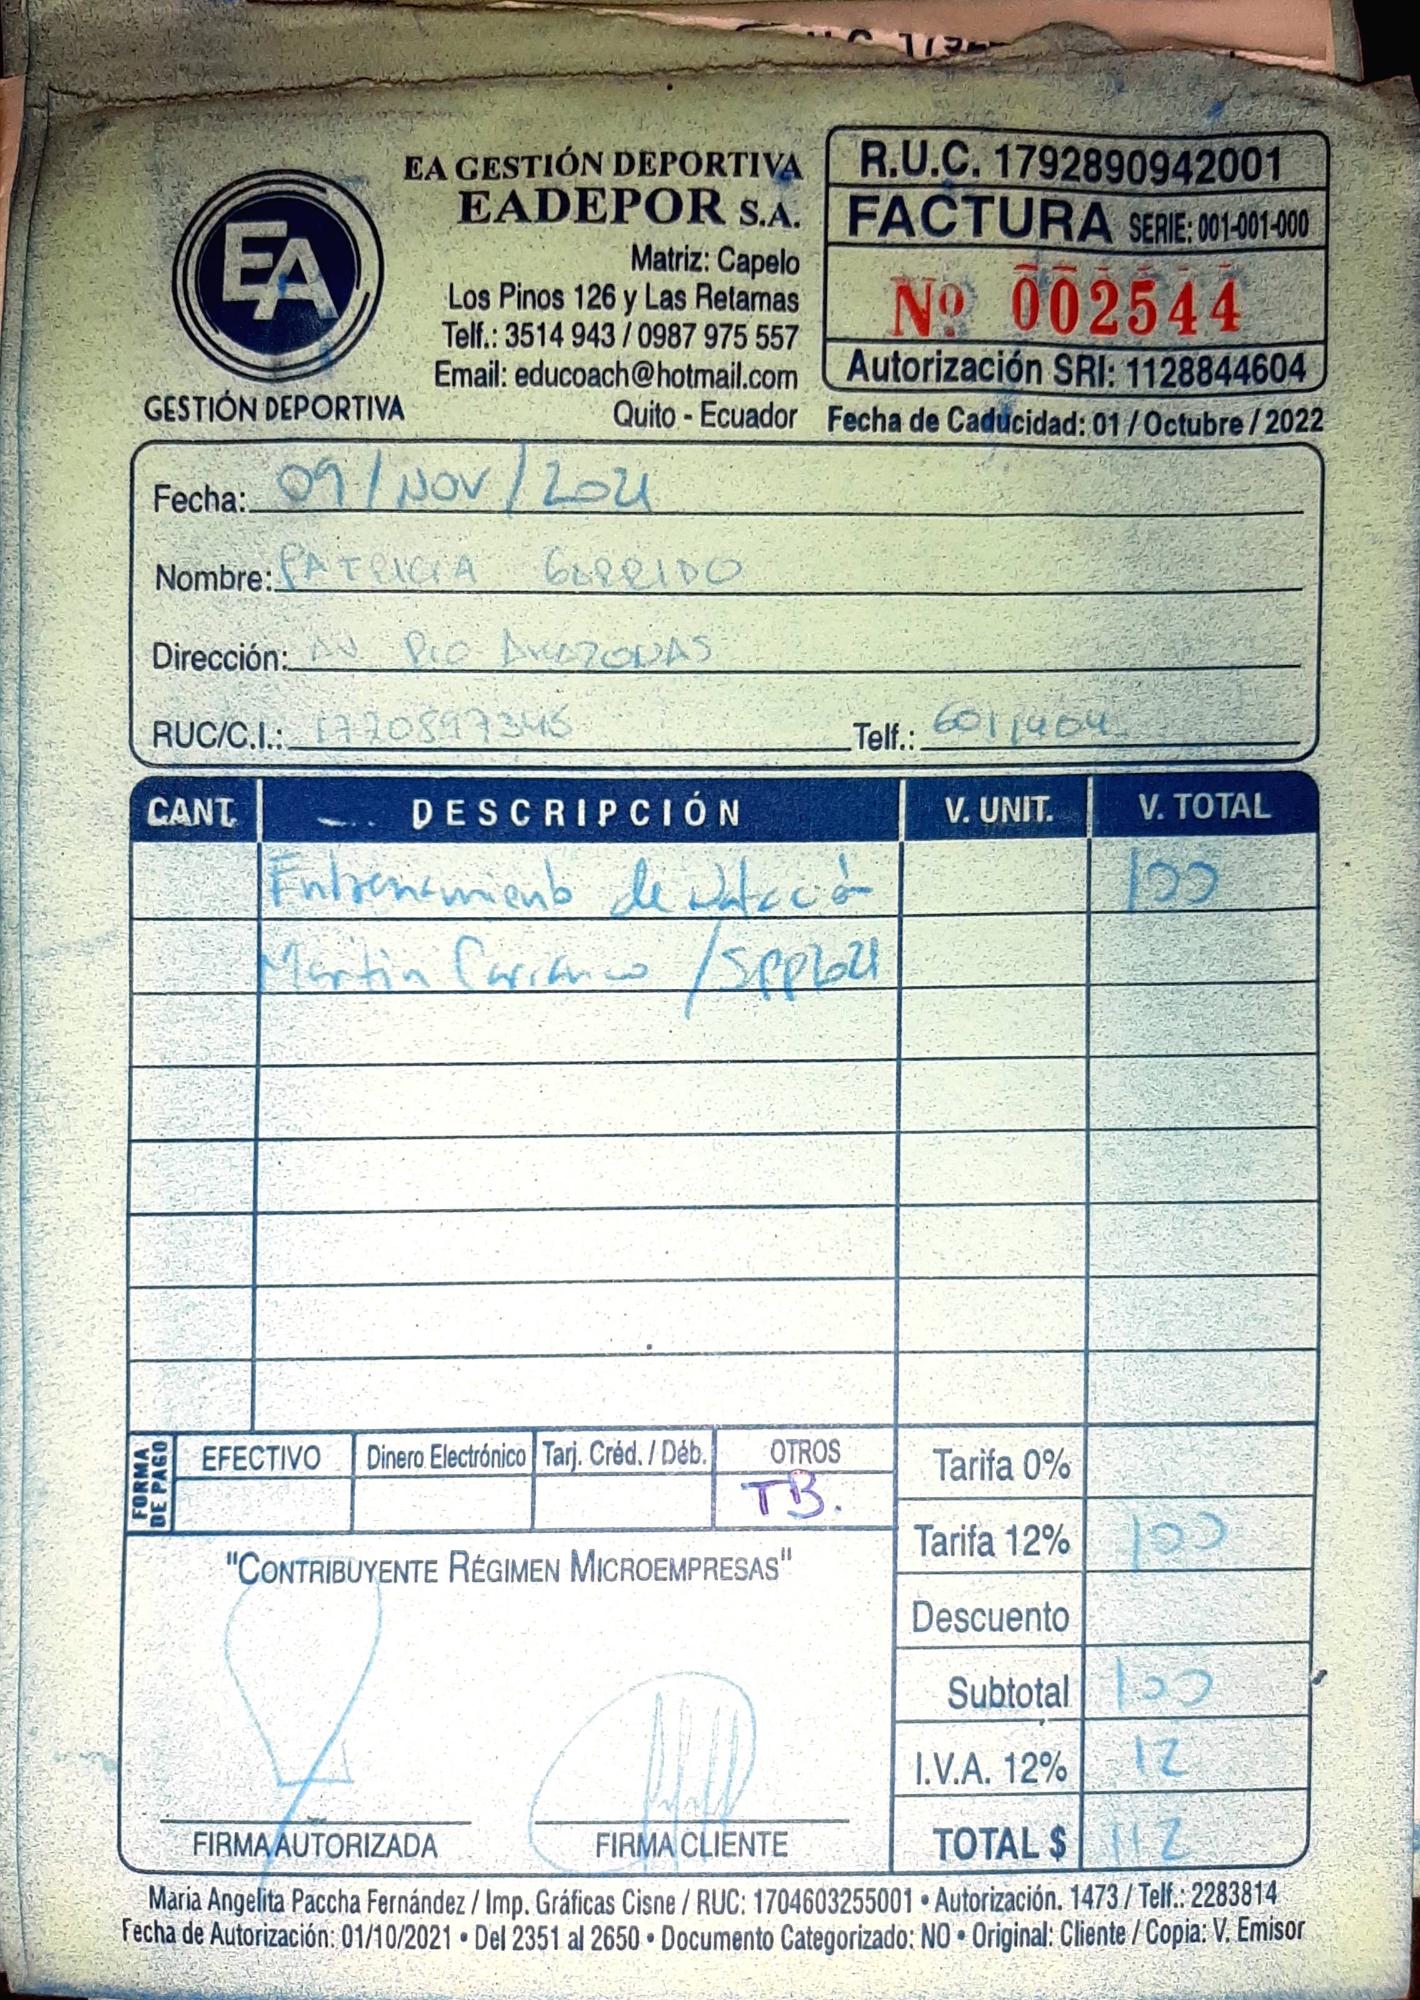 EA
GESTIÓN DEPORTIVA
EA GESTIÓN DEPORTIVA
EADEPOR S.A.
Matriz: Capelo
Los Pinos 126 y Las Retamas
Telf.: 3514 943 / 0987 975 557
Email: educoach@hotmail.com
Quito - Ecuador
R.U.C. 1792890942001
FACTURA SERIE: 001-001-000
Nº 002544
Autorización SRI: 1128844604
Fecha de Caducidad: 01 / Octubre / 2022
Fecha: 09/NOV/2021
Nombre: PATRICIA GARRIDO
Dirección: AV RIO AMAZONAS
RUC/C.I.: 1720897345 Telf.: 6011404
CANT. DESCRIPCIÓN V. UNIT. V. TOTAL
Entrenamiento de Natación 100
Martin /
FORMA DE PAGO
EFECTIVO Dinero Electrónico Tarj. Créd. / Déb. OTROS
TB.
Tarifa 0%
Tarifa 12% 100
Descuento
Subtotal 100
I.V.A. 12% 12
TOTAL $ 112
"CONTRIBUYENTE RÉGIMEN MICROEMPRESAS"
FIRMA AUTORIZADA FIRMA CLIENTE
Maria Angelita Paccha Fernández / Imp. Gráficas Cisne / RUC: 1704603255001 • Autorización. 1473 / Telf.: 2283814
Fecha de Autorización: 01/10/2021 • Del 2351 al 2650 • Documento Categorizado: NO • Original: Cliente / Copia: V. Emisor